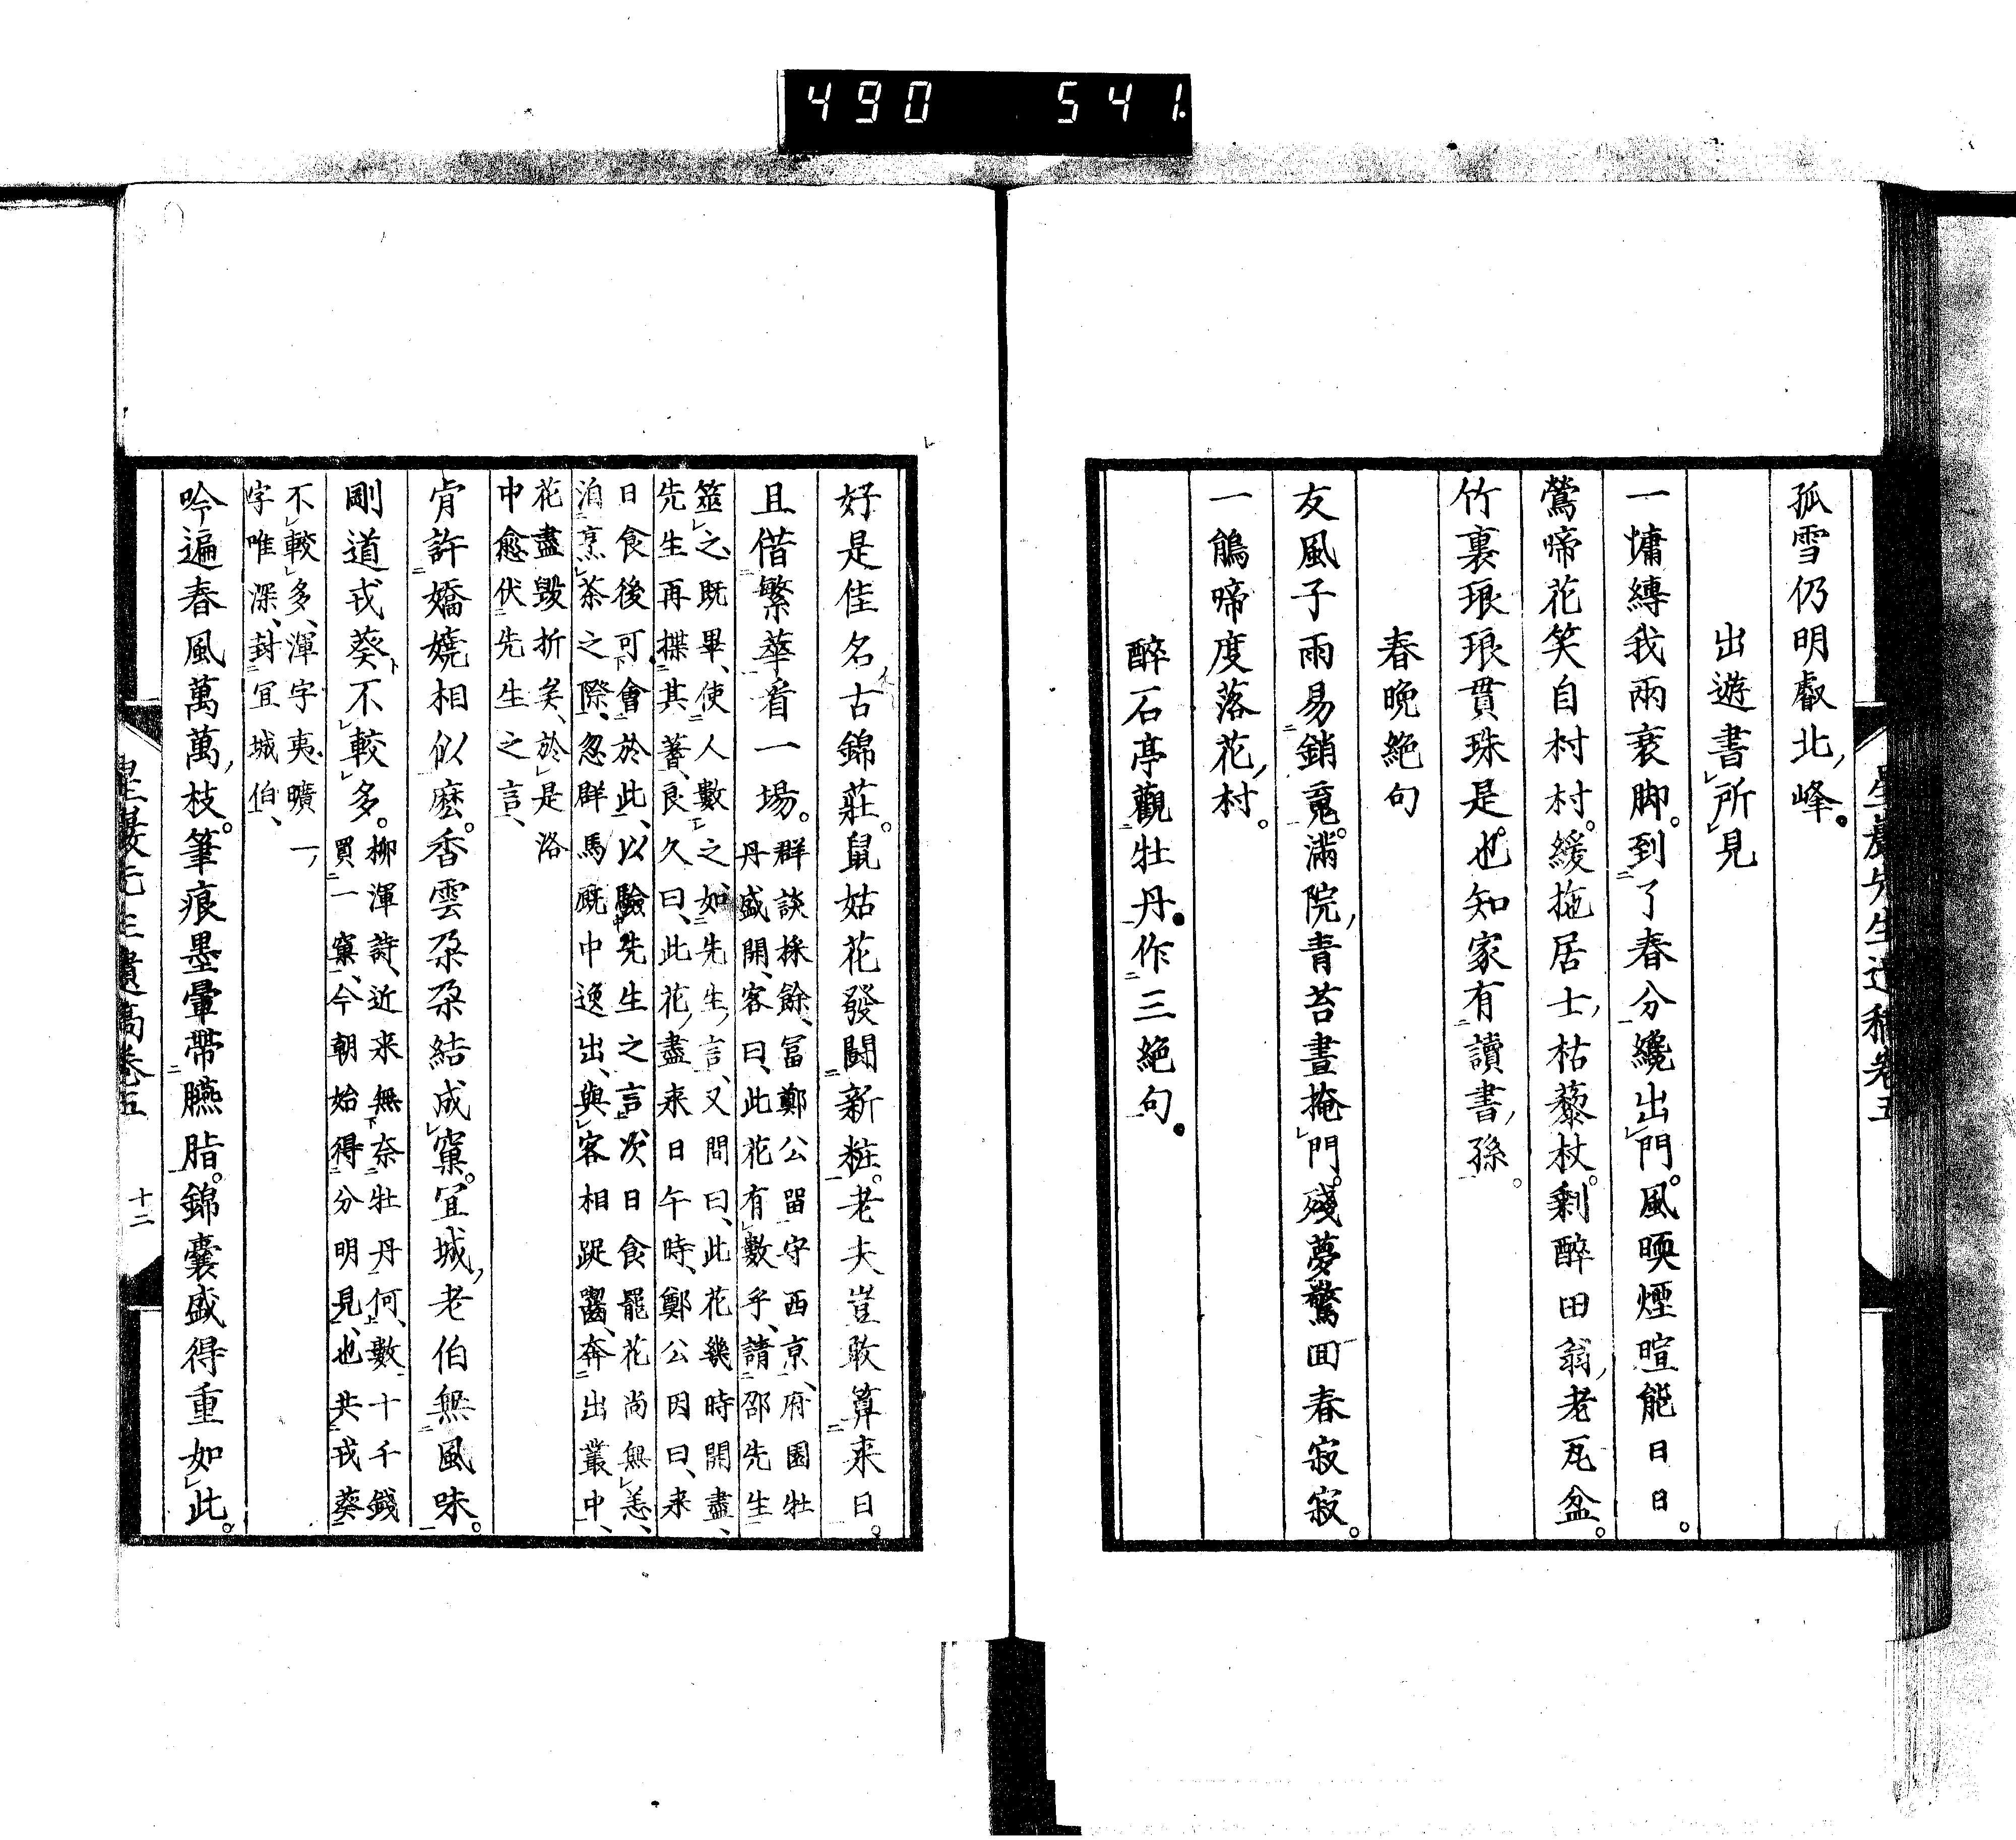 490 541.
孤雪仍明叡北峰
出遊書所見
一慵縛我兩衰脚到了春分纔出門風暖煙暄能日日
鶯啼花笑自村村緩拖居士枯藜杖剩醉田翁老瓦盆
竹裏琅琅貫珠是也知家有讀書孫
春晩絶句
友風子雨易銷魂滿院青苔晝掩門殘夢驚回春寂寂
一鵑啼度落花村
醉石亭觀牡丹作三絶句
好是佳名古錦莊鼠姑花發鬪新粧老夫豈敢算来日
且偕繁華看一場
群談採餘富鄭公留守西京府園牡
丹盛開客曰此花有數乎請邵先生
筮之既畢使人數之如先生言又問曰此花幾時開盡
先生再揲其蓍良久曰此花盡来日午時鄭公因曰来
日食後可會於此以驗先生之言次日食罷花尚無恙
洎烹茶之際忽群馬厩中逸出與客相踶齧奔出叢中
花盡毀折矣於是洛
中愈伏先生之言
肯許嬌嬈相似麽香雲朶朶結成窠宜城老伯無風味
剛道戎葵不較多
柳渾詩近来無奈牡丹何數十千錢
買一窠今朝始得分明見也共戎葵
不較多渾字夷曠一
字唯深封宜城伯
吟遍春風萬萬枝筆痕墨暈帶臙脂錦囊盛得重如此
星巖先生遺稿卷五 十二